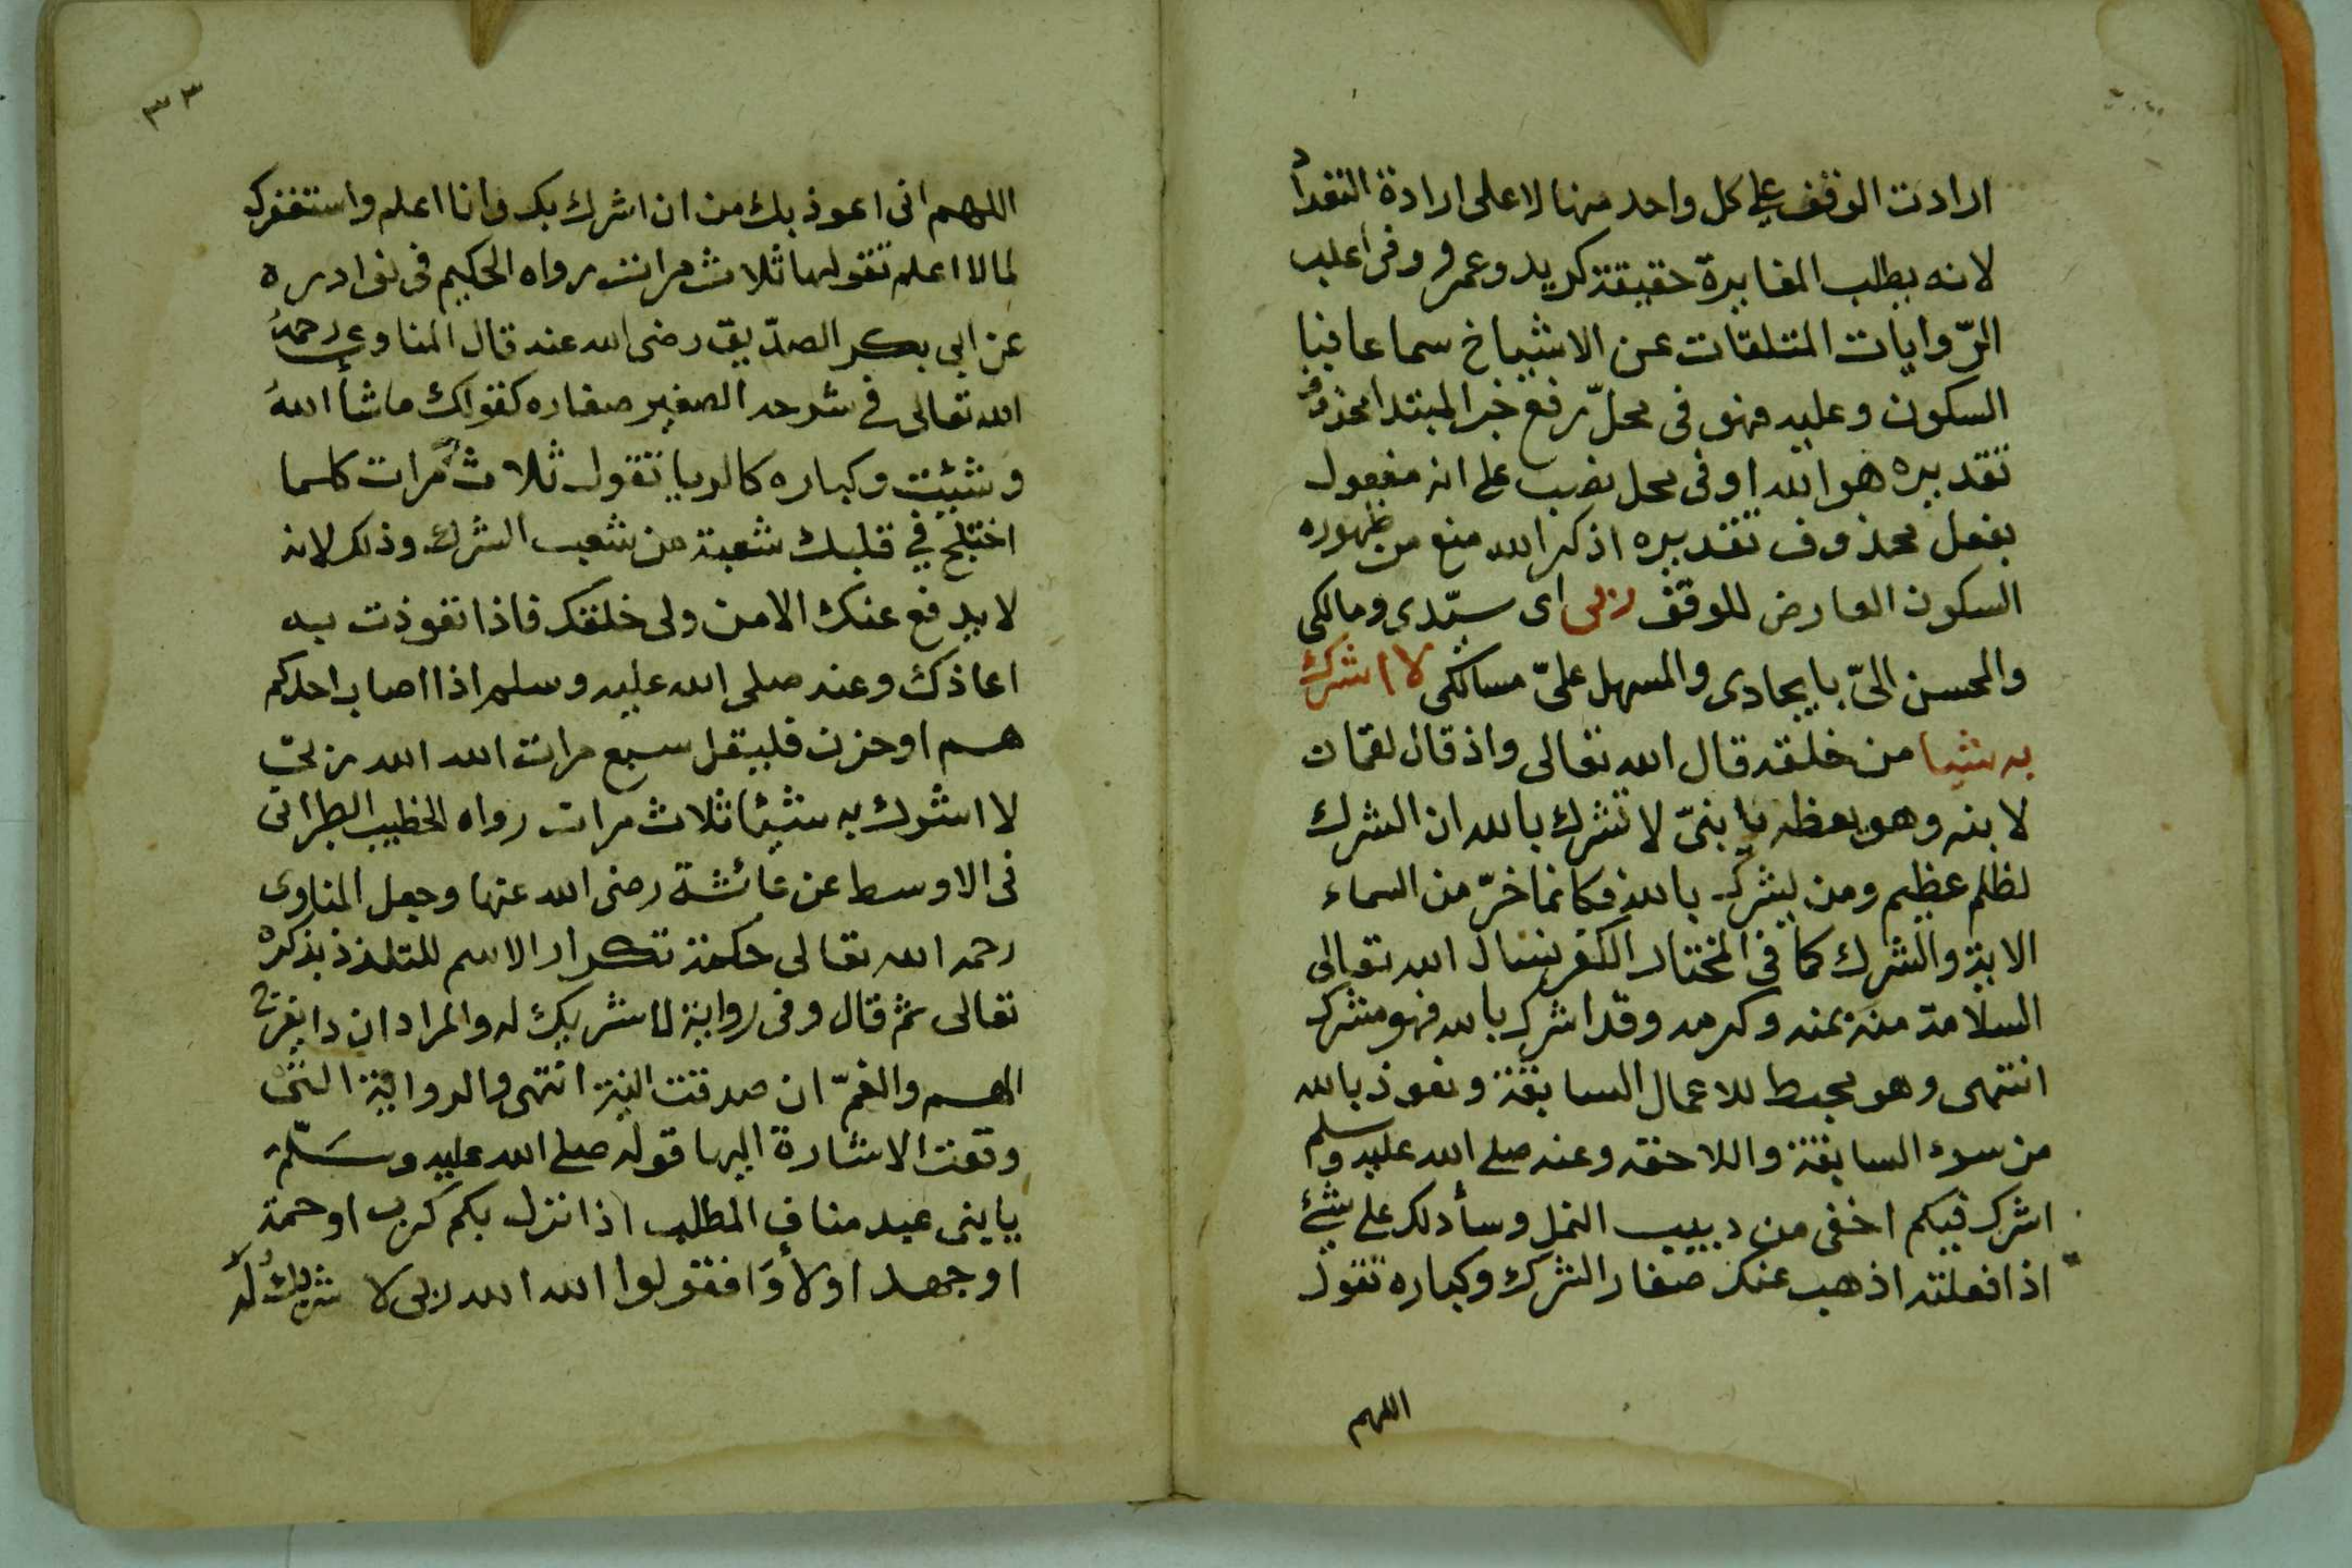 ارادت الوقف على كل واحد منها لا على ارادة التعداد
لانه يطلب المغايرة حقيقة كزيد وعمرو وفى اغلب
الرّوايات المتلقات عن الاشياخ سماعا فيها
السكون وعليه فهو فى محلّ رفع خبر المبتدا محذوف
تقديره هو الله او فى محل نصب على انه مفعول
بفعل محذوف تقديره اذكر الله منع من ظهوره
السكون العارض للوقف ربى اى سيّدى ومالكى
والمحسن الىّ بايجادى والمسهل علىّ مسالكى لا اشرك
به شيا من خلقه قال الله تعالى واذ قال لقمان
لابنه وهو يعظه يا بنىّ لا تشرك بالله ان الشرك
لظلم عظيم ومن يشرك بالله فكانما خرّ من السماء
الاية والشرك كما فى المختار الكفر نسال الله تعالى
السلامة منه بمنه وكرمه وقد اشرك بالله فهو مشرك
انتهى وهو محبط للاعمال السابقة ونعوذ بالله
من سوء السابقة واللاحقه وعنه صلى الله عليه وسلم
اشرك فيكم اخفى من دبيب النمل وسأدلك على شئ
اذا فعلته اذهب عنك صغار الشرك وكباره تقول
اللهم
٣٣
اللهم انى اعوذ بك من ان اشرك بك وانا اعلم واستغفرك
لما لا اعلم تقولها ثلاث مرات رواه الحكيم فى نوادره
عن ابى بكر الصدّيق رضى الله عنه قال المناوى رحمه
الله تعالى فى شرحه الصغير صغاره كقولك ما شأ الله
وشئيت وكباره كالريا تقول ثلاث مرات كلما
اختلج في قلبك شعبة من شعب الشرك وذلك لانه
لا يدفع عنك الا من ولى خلقك فاذا تعوذت به
اعاذك وعنه صلى الله عليه وسلم اذا اصاب احدكم
هم او حزن فليقل سبع مرات الله الله ربى
لا اشرك به شيئا ثلاث مرات رواه الخطيب الطبرانى
فى الاوسط عن عائشة رضى الله عنها وجعل المناوى
رحمه الله تعالى حكمة تكرار الاسم للتلذذ بذكره
تعالى ثم قال وفى رواية لا شريك له والمراد ان ذا يفرج
الهم والغمّ ان صدقت النية انتهى والرواية التى
وقعت الاشارة اليها قوله صلى الله عليه وسلّم
يا بنى عبد مناف المطلب اذا نزل بكم كرب او حمة
او جهد او لأواء فقولوا الله الله ربى لا شريك له